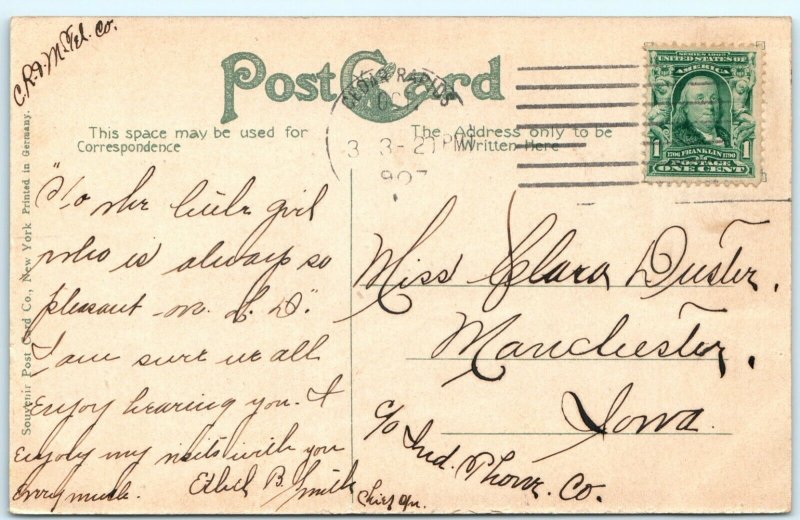 C.R. & M. Tel. Co.
Post Card
This space may be used for
Correspondence
The Address only to be
Written Here
CEDAR RAPIDS
3 3-2 PM
907
SERIES 1902
UNITED STATES OF
AMERICA
1 1706 FRANKLIN 1790 1
POSTAGE
ONE CENT
Souvenir Post Card Co., New York Printed in Germany.
"To the little girl
who is always so
pleasant on L. D."
I am sure we all
enjoy hearing you. I
enjoy my visits with you
very much.
Ethel B. Smith
Chief Opr.
Miss Clara Duster,
Manchester,
Iowa.
c/o Ind. Phone Co.